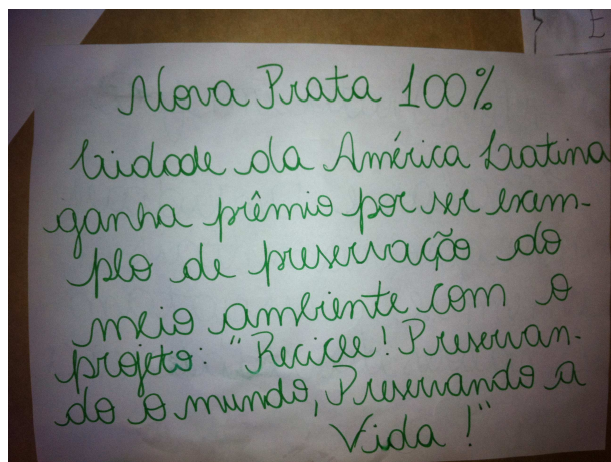 Nova Prata 100%
Cidade da América Latina
ganha prêmio por ser exem-
plo de preservação do
meio ambiente com o
projeto: "Recicle! Preservan-
do o mundo, Preservando a
Vida!"
E